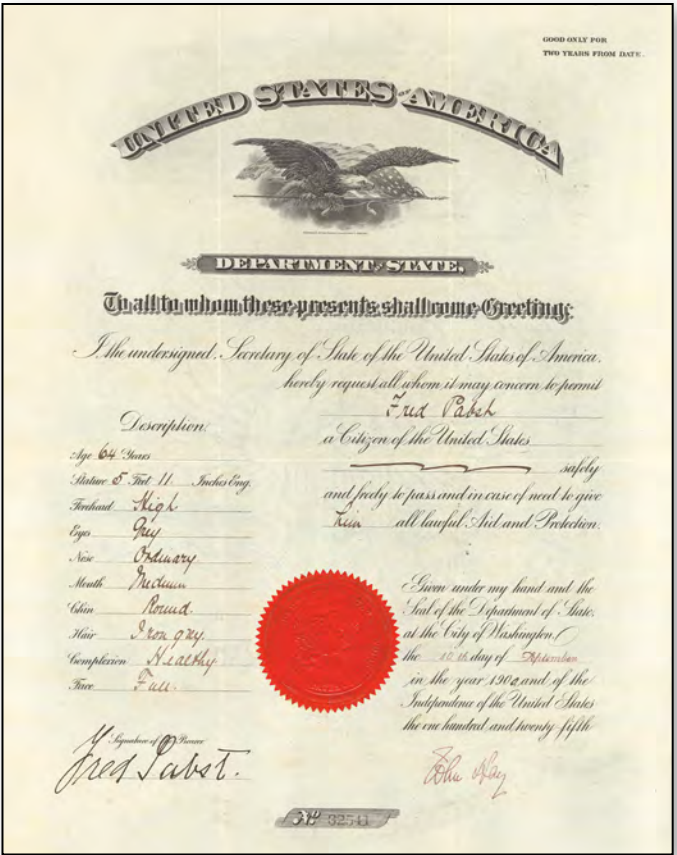 GOOD ONLY FOR
TWO YEARS FROM DATE.
UNITED STATES OF AMERICA
DEPARTMENT OF STATE.
To all to whom these presents shall come Greeting:
I the undersigned, Secretary of State of the United States of America,
hereby request all whom it may concern to permit
Fred Pabst
a Citizen of the United States
safely
and freely to pass and in case of need to give
him all lawful Aid and Protection.
Description.
Age 64 Years
Stature 5 Feet 11 Inches Eng.
Forehead High
Eyes Grey
Nose Ordinary
Mouth Medium
Chin Round.
Hair Iron grey.
Complexion Healthy
Face Full.
Signature of the Bearer
Fred Pabst.
Given under my hand and the
Seal of the Department of State,
at the City of Washington,
the 10th day of September
in the year 1900, and of the
Independence of the United States
the one hundred and twenty-fifth
John Hay
No 32541